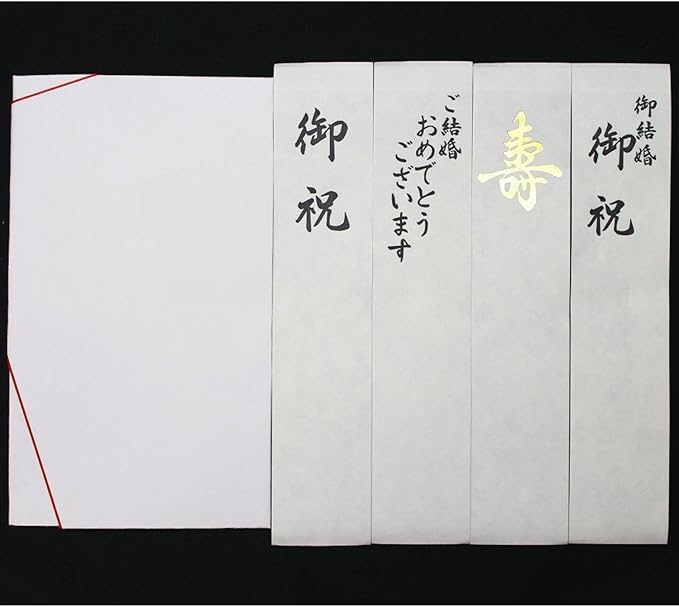 御祝
ご結婚
おめでとう
ございます
寿
御結婚
御祝